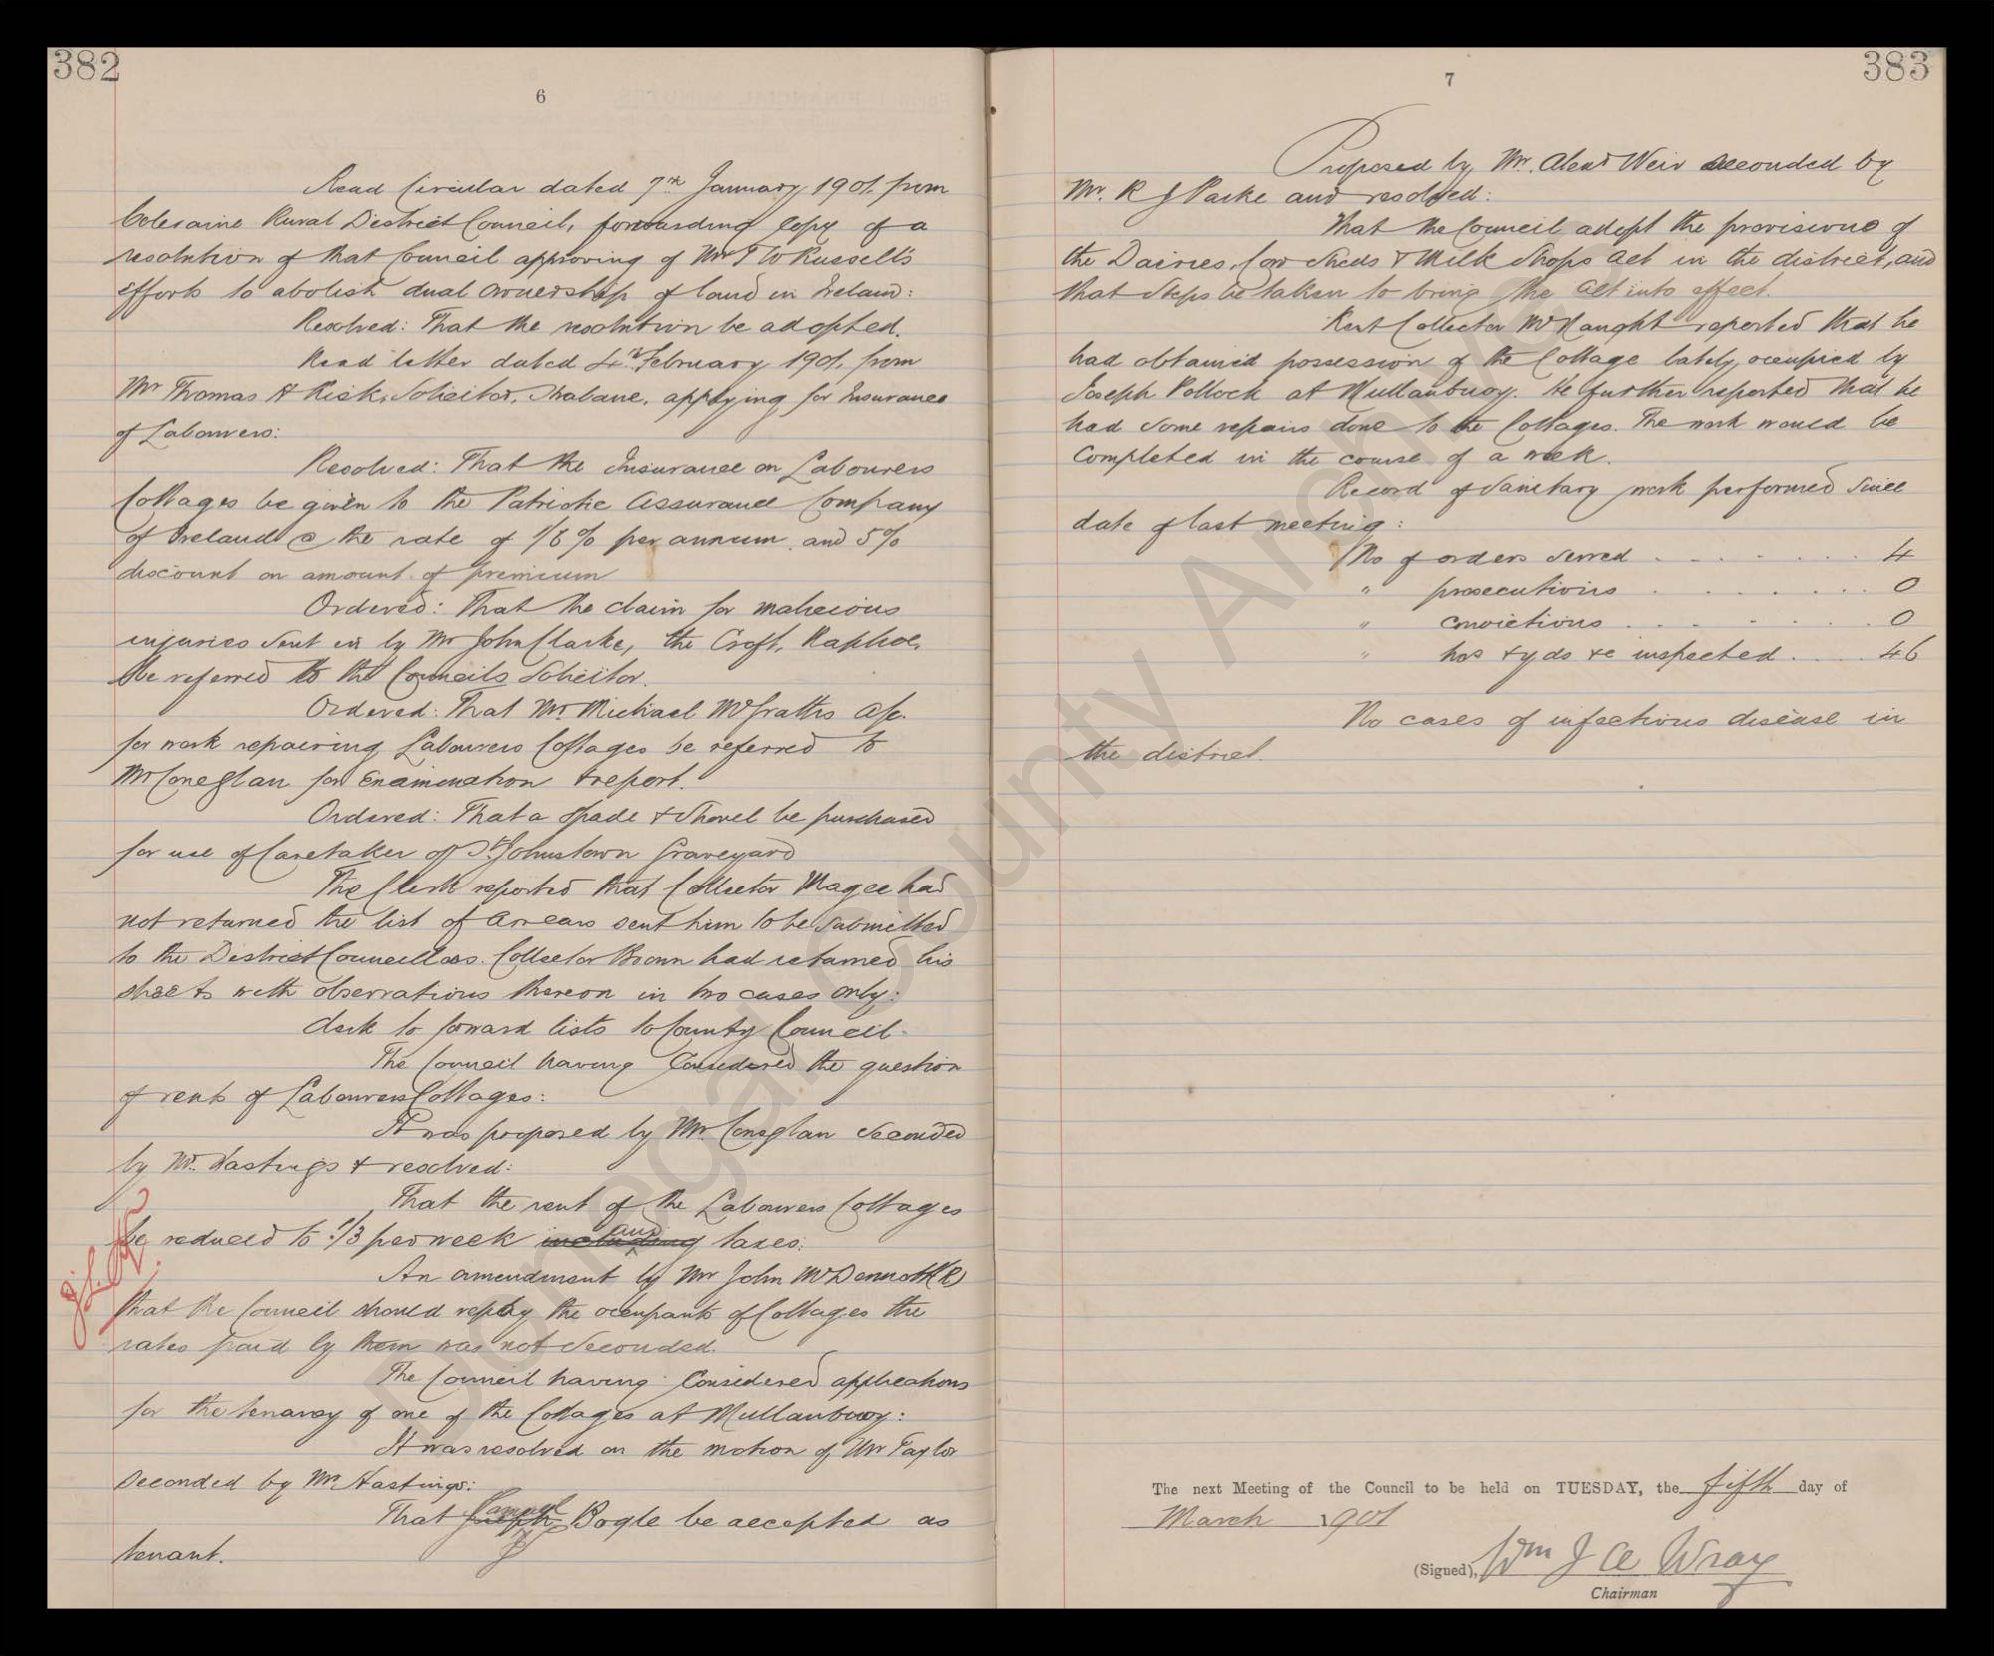 382
6
Read Circular dated 7th January 1901. from
Coleraine Rural District Council, forwarding copy of a
resolution of that Council approving of Mr T W Russell's
efforts to abolish dual ownership of land in Ireland:
Resolved: That the resolution be adopted.
Read letter dated 4th February 1901, from
Mr Thomas A Risk, Solicitor, Strabane, applying for Insurance
of Labourers:
Resolved: That the Insurance on Labourers
Cottages be given to the Patriotic Assurance Company
of Ireland @ the rate of 1/6 % per annum, and 5%
discount on amount of premium
Ordered: That the claim for malicious
injuries sent in by Mr John Clarke, the Croft, Raphoe,
be referred to the Councils Solicitor.
Ordered: That Mr Michael McGraths a/c.
for work repairing Labourers Cottages be referred to
Mr Coneglan for Examination & report.
Ordered: That a Spade & Shovel be purchased
for use of Caretaker of St Johnstown Graveyard
The Clerk reported that Collector Magee had
not returned the list of Arrears sent him to be submitted
to the District Councillors. Collector Brown had returned his
sheets with observations thereon in two cases only:
Clerk to forward lists to County Council.
The Council having Considered the question
of rents of Labourers Cottages:
It was proposed by Mr Coneglan seconded
by Mr. Hastings & resolved:
That the rent of the Labourers Cottages
be reduced to 1/3 per week including and taxes:
An amendment by Mr John McDermott (R)
that the Council should repay the occupants of Cottages the
rates paid by them was not seconded.
The Council having Considered applications
for the tenancy of one of the Cottages at Mullanbuoy:
It was resolved on the motion of Mr Taylor
Seconded by Mr Hastings:
That Joseph Samuel Bogle be accepted as
tenant.
383
7
Proposed by Mr. Alexr Weir seconded by
Mr. R J Parke and resolved:
That the Council adopt the provisions of
the Dairies, Cow Sheds & Milk Shops Act in the district, and
that steps be taken to bring the Act into effect.
Rent Collector McNaught reported that he
had obtained possession of the Cottage lately occupied by
Joseph Pollock at Mullanbuoy. He further reported that he
had some repairs done to the Cottages. The work would be
completed in the course of a week.
Record of Sanitary work performed since
date of last meeting:
No of orders served . . . . . . 4
" prosecutions . . . . . . . 0
" convictions . . . . . . . 0
" hos & yds &c inspected . . . . 46
No cases of infectious disease in
the district.
The next Meeting of the Council to be held on TUESDAY, the fifth day of
March 1901
(Signed), Wm J A Wray
Chairman
Donegal County Archives